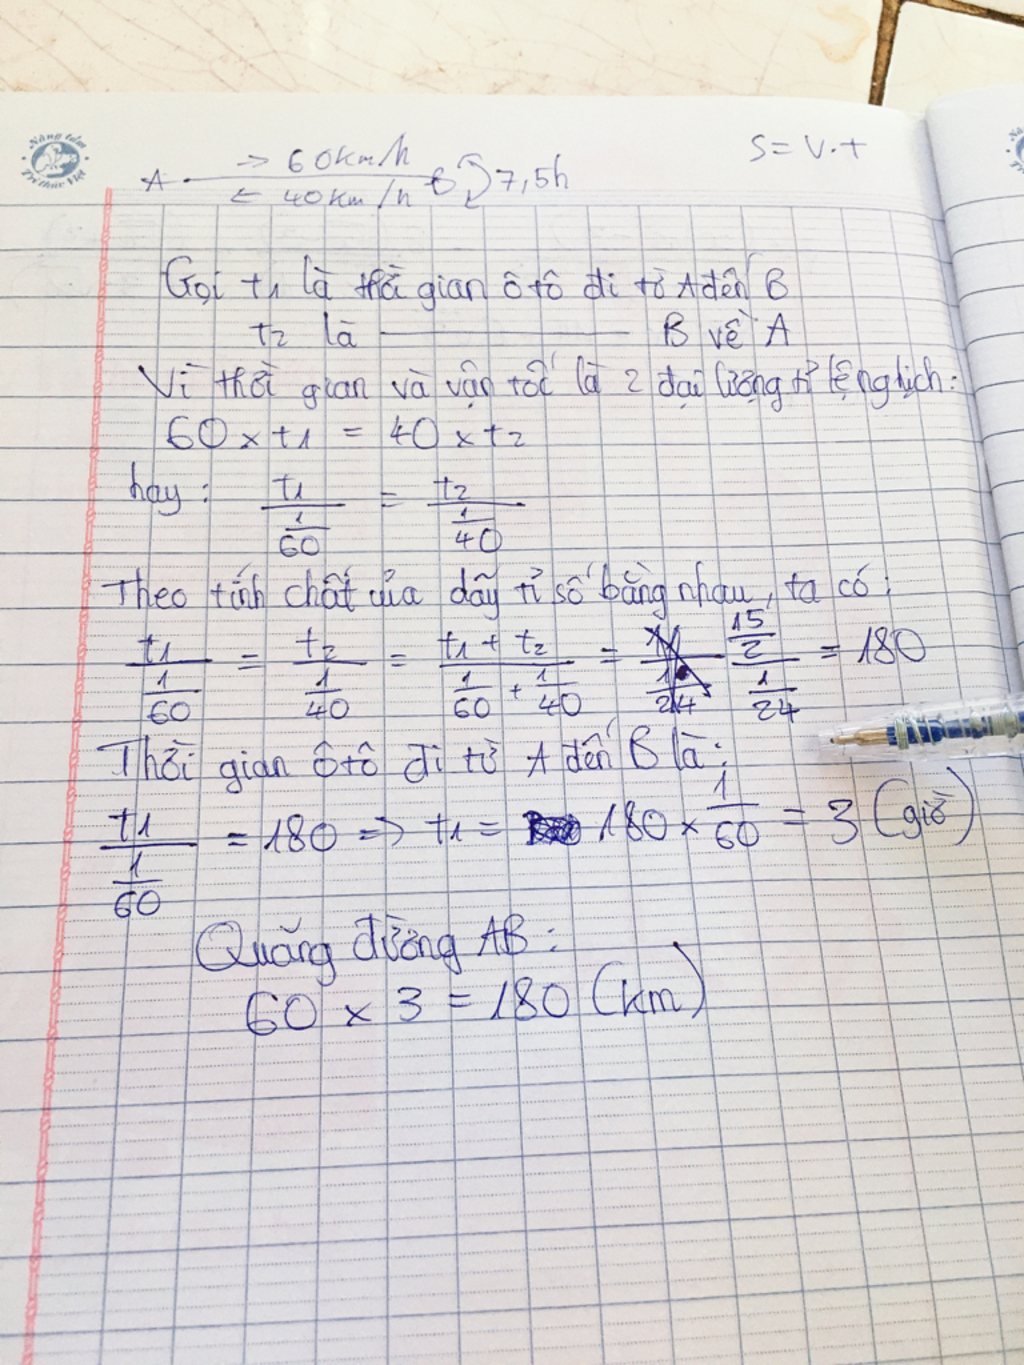 Nâng tầm
Tri thức Việt
S = V.t
A → 60km/h B 7,5h
← 40km/h
Gọi t1 là thời gian ô tô đi từ A đến B
t2 là ———— B về A
Vì thời gian và vận tốc là 2 đại lượng tỉ lệ nghịch:
60 x t1 = 40 x t2
hay: t1/(1/60) = t2/(1/40)
Theo tính chất của dãy tỉ số bằng nhau, ta có:
t1/(1/60) = t2/(1/40) = (t1 + t2)/(1/60 + 1/40) = (15/2)/(1/24) = 180
Thời gian ô tô đi từ A đến B là:
t1/(1/60) = 180 => t1 = 180 x 1/60 = 3 (giờ)
Quãng đường AB:
60 x 3 = 180 (km)